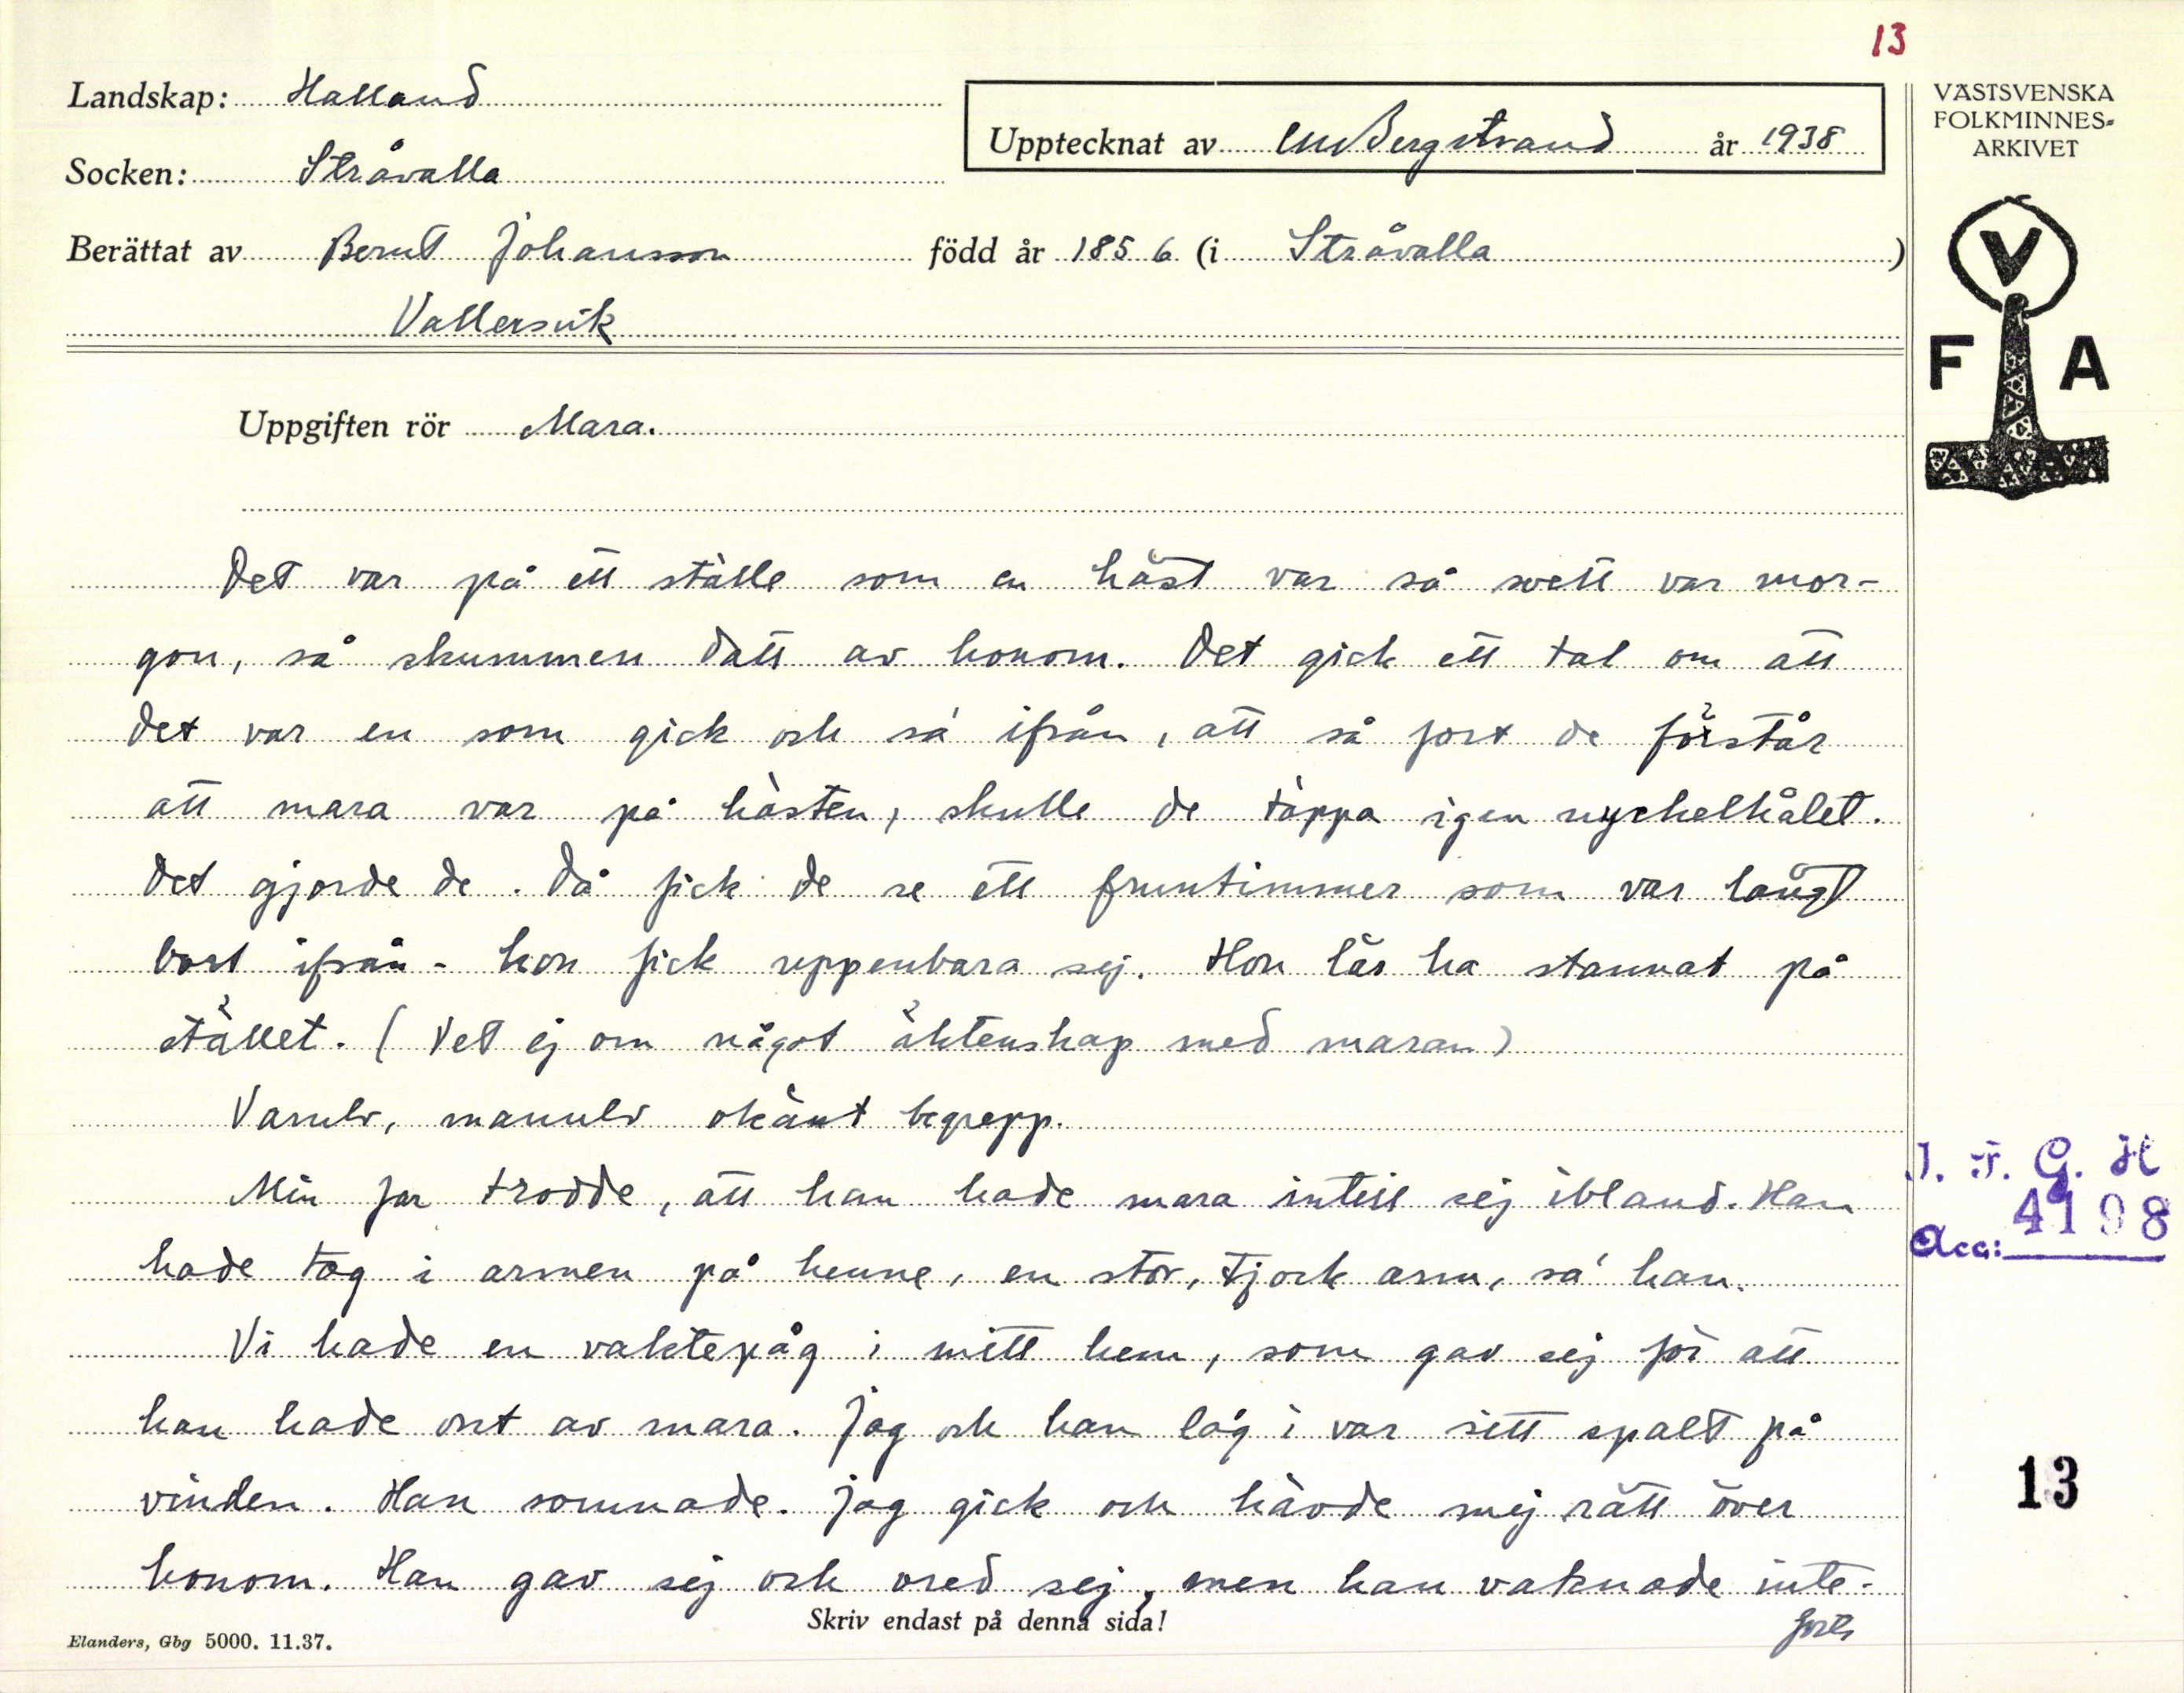 13
Landskap: Halland
Upptecknat av CM Bergstrand år 1938
VÄSTSVENSKA
FOLKMINNES-
ARKIVET
Socken: Stråvalla
Berättat av Bernt Johansson född år 1856 (i Stråvalla)
Vallersvik
V
F A
Uppgiften rör Mara.
Det var på ett ställe som en häst var så svett var mor-
gon, så skummen datt av honom. Det gick ett tal om att
det var en som gick och sa' ifrån, att så fort de förstår
att mara var på hästen, skulle de täppa igen nyckelhålet.
Det gjorde de. Då fick de se ett fruntimmer som var långt
bort ifrån - hon fick uppenbara sej. Hon lär ha stannat på
stället. (Vet ej om något äktenskap med maran)
Varulv, marulv okänt begrepp.
Min far trodde, att han hade mara intill sej ibland. Han
hade tag i armen på henne, en stor, tjock arm, sa' han.
Vi hade en vaktepåg i mitt hem, som gav sej för att
han hade ont av mara. Jag och han låg i var sitt spalt på
vinden. Han somnade. Jag gick och hävde mej rätt över
honom. Han gav sej och vred sej, men han vaknade inte.
Forts
Skriv endast på denna sida!
Elanders, Gbg 5000. 11.37.
I. F. G. H
Acc: 4198
13